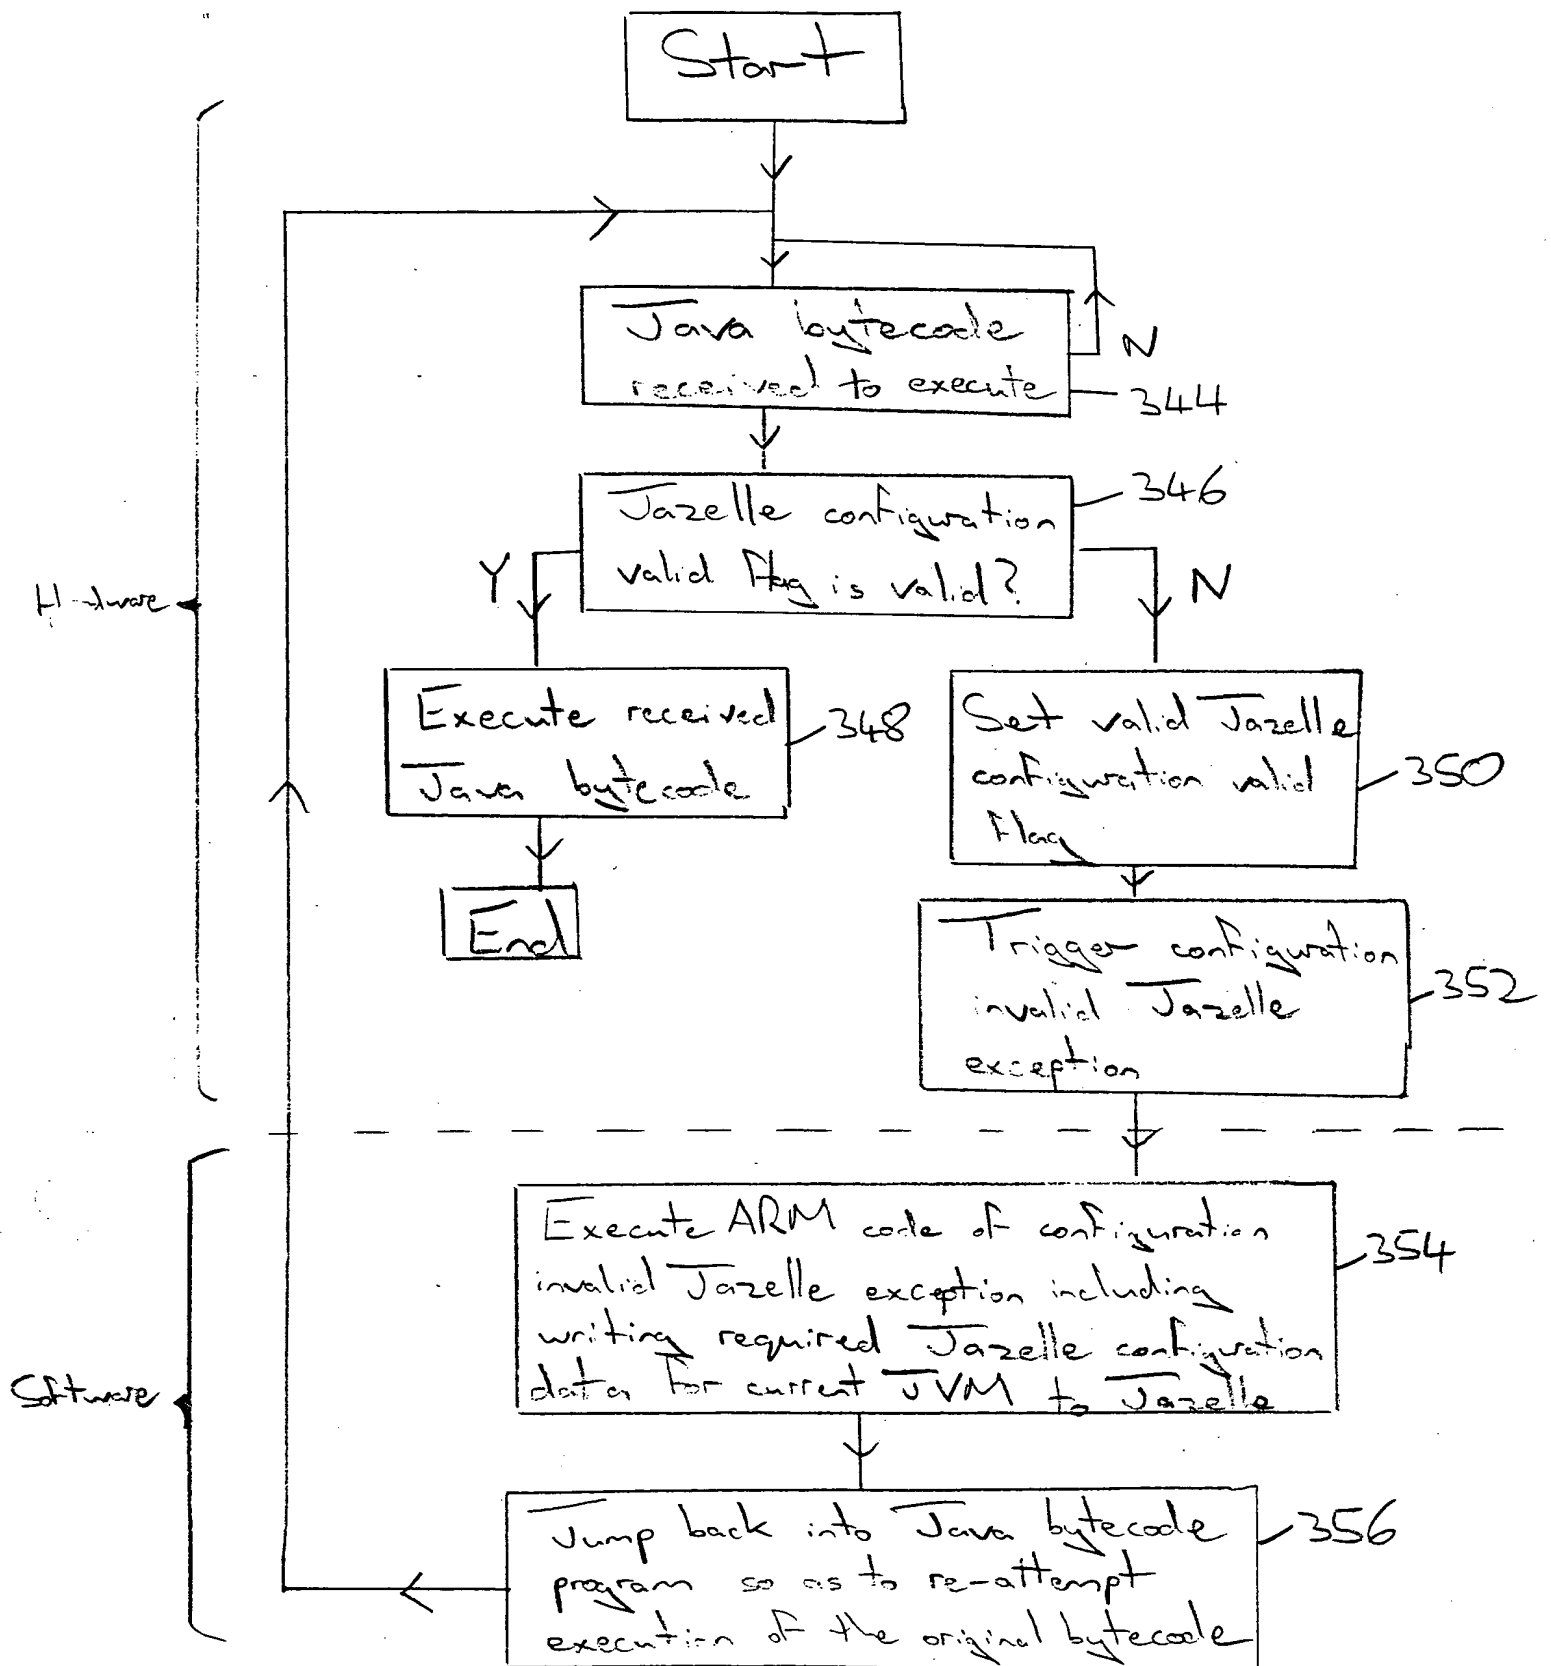 Start
Java bytecode
received to execute
N
344
Jazelle configuration
valid flag is valid?
346
Y
N
Hardware
Execute received
Java bytecode
348
Set valid Jazelle
configuration valid
flag
350
End
Trigger configuration
invalid Jazelle
exception
352
Execute ARM code of configuration
invalid Jazelle exception including
writing required Jazelle configuration
data for current JVM to Jazelle
354
Software
Jump back into Java bytecode
program so as to re-attempt
execution of the original bytecode
356